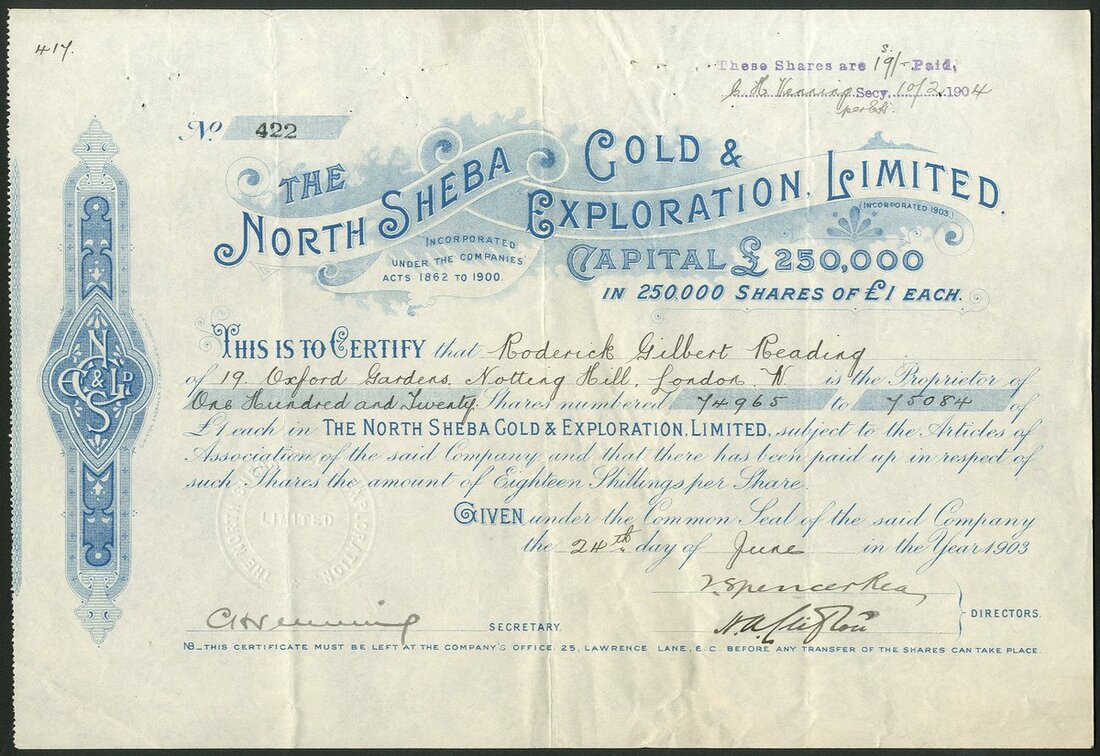 417.
These Shares are 19/- Paid,
s.
C H Venning Secy. 10/2 1904
per
No. 422
THE NORTH SHEBA GOLD & EXPLORATION, LIMITED.
(INCORPORATED 1903.)
INCORPORATED
UNDER THE COMPANIES
ACTS 1862 TO 1900.
CAPITAL £250,000
IN 250,000 SHARES OF £1 EACH.
THIS IS TO CERTIFY that Roderick Gilbert Reading
of 19, Oxford Gardens, Notting Hill, London. W is the Proprietor of
One Hundred and Twenty Shares numbered 74965 to 75084 of
£1 each in THE NORTH SHEBA GOLD & EXPLORATION, LIMITED, subject to the Articles of
Association of the said Company, and that there has been paid up in respect of
such Shares the amount of Eighteen Shillings per Share.
GIVEN under the Common Seal of the said Company
the 24th day of June in the Year 1903
THE NORTH SHEBA GOLD & EXPLORATION
LIMITED
J. Spencer Rea
H.A. Clifton
DIRECTORS.
C H Venning SECRETARY.
NB_THIS CERTIFICATE MUST BE LEFT AT THE COMPANY'S OFFICE. 25, LAWRENCE LANE, E.C. BEFORE ANY TRANSFER OF THE SHARES CAN TAKE PLACE.